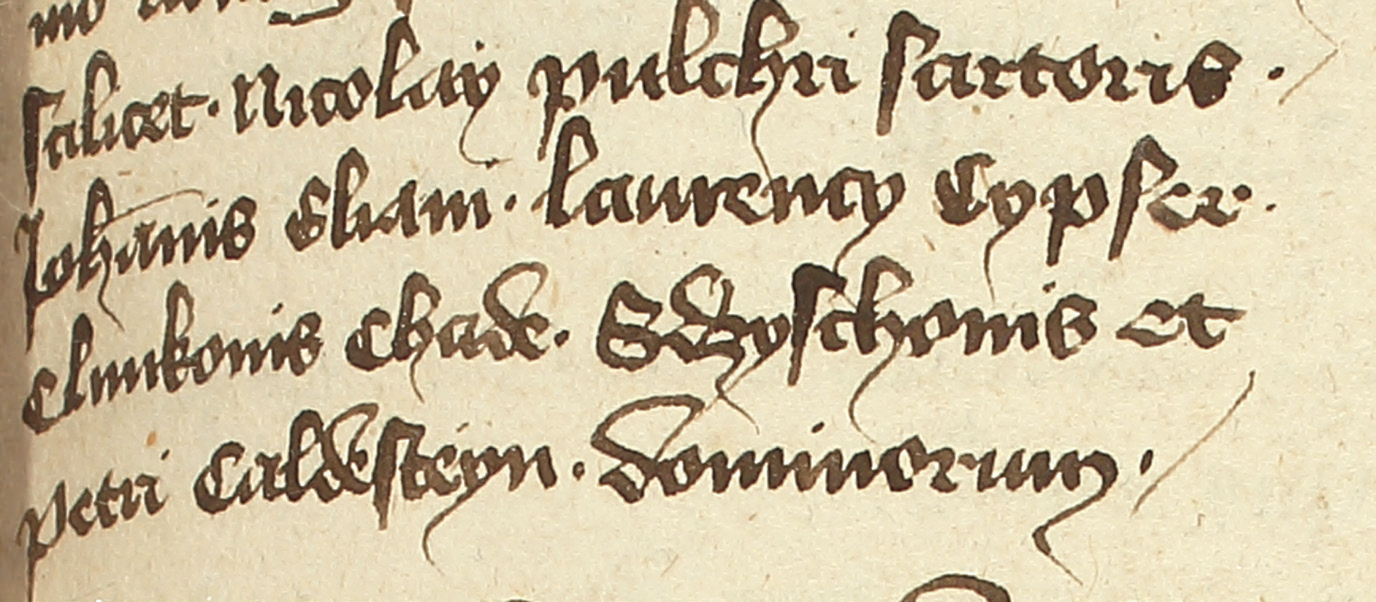 scilicet · Nicolay pulchri sartoris ·
Johānis Eliam · laurency Cypser ·
Clunkonis Chade · Sdzyschonis et
petri Caldesteyn · dominorum ·